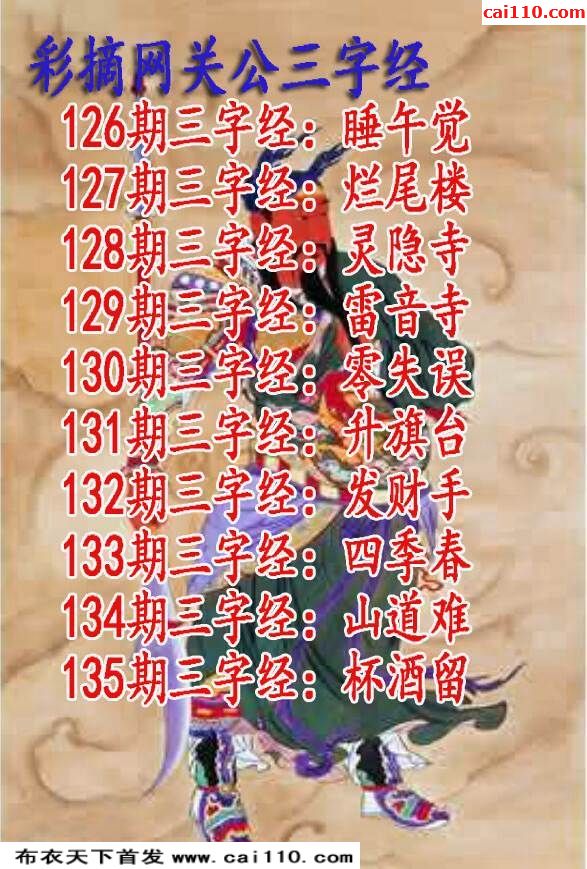 cai110.com
彩摘网关公三字经
126期三字经：睡午觉
127期三字经：烂尾楼
128期三字经：灵隐寺
129期三字经：雷音寺
130期三字经：零失误
131期三字经：升旗台
132期三字经：发财手
133期三字经：四季春
134期三字经：山道难
135期三字经：杯酒留
布衣天下首发 www.cai110.com